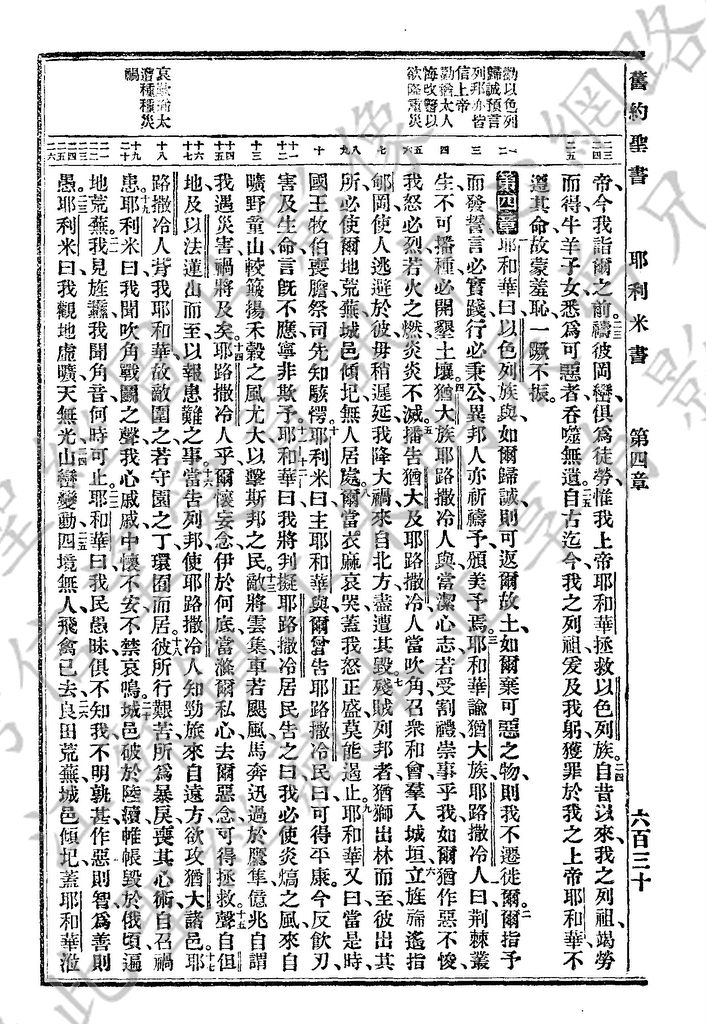 舊約聖書 耶利米書 第四章 六百三十
勸以色列
歸誠預言
列邦亦皆
信上帝
勸猶太人
悔改警以
欲降重災
哀歎猶太
遭種種災
禍
帝今我詣爾之前禱彼岡巒俱爲徒勞惟我上帝耶和華拯救以色列族自昔以來我之列祖竭勞
而得牛羊子女悉爲可惡者吞噬無遺自古迄今我之列祖爰及我躬獲罪於我之上帝耶和華不
遵其命故蒙羞恥一蹶不振
第四章耶和華曰以色列族與如爾歸誠則可返爾故土如爾棄可惡之物則我不遷徙爾爾指予
而發誓言必實踐行必秉公異邦人亦祈禱予頒美予焉耶和華諭猶大族耶路撒冷人曰荊棘叢
生不可播種必開墾土壤猶大族耶路撒冷人與當潔心志若受割禮崇事乎我如爾猶作惡不悛
我怒必烈若火之燃炎炎不滅播告猶大及耶路撒冷人當吹角召衆和會羣入城垣立旌旆遙指
郇岡使人逃避於彼毋稍遲延我降大禍來自北方盡遭其毀殘賊列邦者猶獅出林而至彼出其
所必使爾地荒蕪城邑傾圮無人居處爾當衣麻哀哭蓋我怒正盛莫能遏止耶和華又曰當是時
國王牧伯喪膽祭司先知駭愕耶利米曰主耶和華與爾嘗告耶路撒冷民曰可得平康今反飲刃
害及生命言旣不應寧非欺予耶和華曰我將判擬耶路撒冷居民告之曰我必使炎熇之風來自
曠野童山較簸揚禾穀之風尤大以擊斯邦之民敵將雲集車若颶風馬奔迅過於鷹隼億兆自謂
我遇災害禍將及矣耶路撒冷人乎爾懷妄念伊於何底當滌爾私心去爾惡念可得拯救聲自但
地及以法蓮山而至以報患難之事當告列邦使耶路撒冷人知勁旅來自遠方欲攻猶大諸邑耶
路撒冷人背我耶和華故敵圍之若守園之丁環囿而居彼所行艱苦所爲暴戾喪其心術自召禍
患耶利米曰我聞吹角戰鬭之聲我心戚戚中懷不安不禁哀鳴城邑破於陸續帷帳毀於俄頃遍
地荒蕪我見旌纛我聞角音何時可止耶和華曰我民愚昧俱不知我不明孰甚作惡則智爲善則
愚耶利米曰我觀地虛曠天無光山巒變動四境無人飛禽已去良田荒蕪城邑傾圮蓋耶和華涖